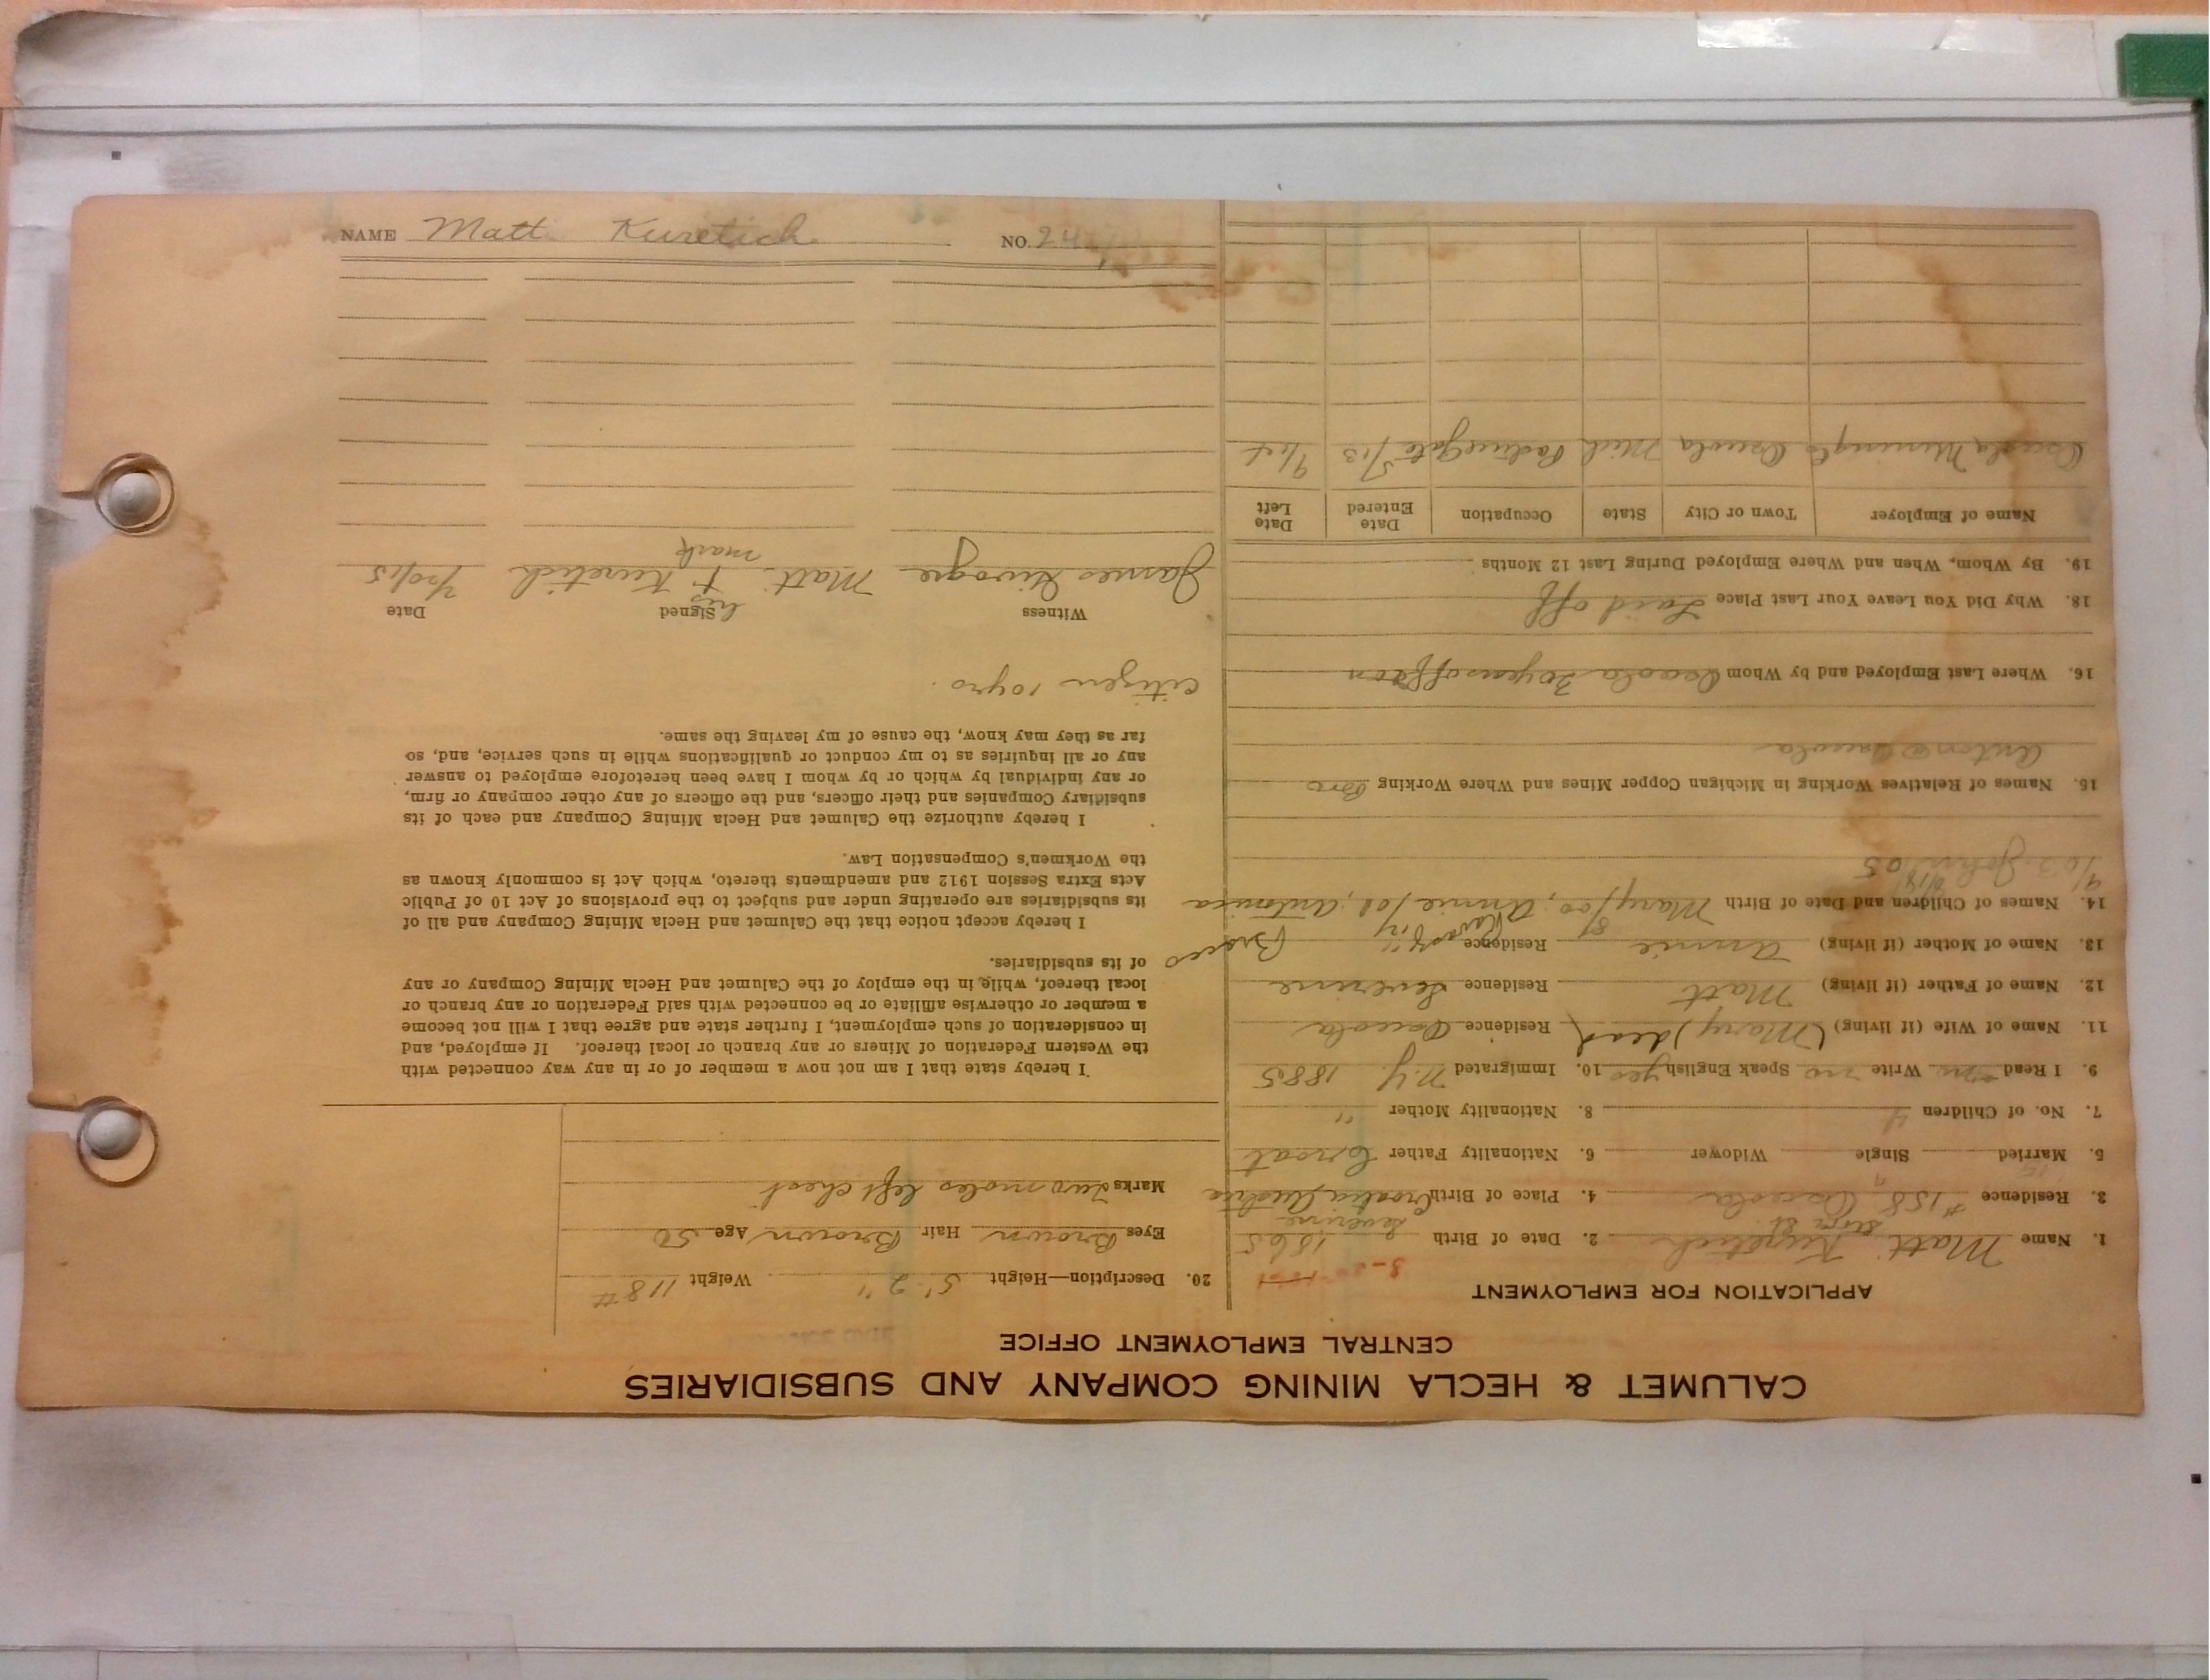 CALUMET & HECLA MINING COMPANY AND SUBSIDIARIES
CENTRAL EMPLOYMENT OFFICE
APPLICATION FOR EMPLOYMENT
1. Name Matt Kuretich 2. Date of Birth 1865
3. Residence #158 Osceola 4. Place of Birth Croatia, Austria
Severine
5. Married Single Widower 6. Nationality Father Croat
7. No. of Children 4 8. Nationality Mother "
9. I Read no Write no Speak English yes 10. Immigrated N.Y. 1885
11. Name of Wife (if living) (Mary) dead Residence Osceola
12. Name of Father (if living) Matt Residence Severine
13. Name of Mother (if living) Annie Residence "
14. Names of Children and Date of Birth Mary/00, Annie/01, Antonia
9/03 John 05
15. Names of Relatives Working in Michigan Copper Mines and Where Working Bro
Anton @ Osceola
16. Where Last Employed and by Whom Osceola 30 years off & on
18. Why Did You Leave Your Last Place Laid off
19. By Whom, When and Where Employed During Last 12 Months
Name of Employer Town or City State Occupation Date Entered Date Left
Osceola Mining Co Osceola Mich 5/13 9/14
20. Description—Height 5' 2" Weight 118#
Eyes Brown Hair Brown Age 50
Marks Two moles left chest
I hereby state that I am not now a member of or in any way connected with
the Western Federation of Miners or any branch or local thereof. If employed, and
in consideration of such employment, I further state and agree that I will not become
a member or otherwise affiliate or be connected with said Federation or any branch or
local thereof, while in the employ of the Calumet and Hecla Mining Company or any
of its subsidiaries.
I hereby accept notice that the Calumet and Hecla Mining Company and all of
its subsidiaries are operating under and subject to the provisions of Act 10 of Public
Acts Extra Session 1912 and amendments thereto, which Act is commonly known as
the Workmen's Compensation Law.
I hereby authorize the Calumet and Hecla Mining Company and each of its
subsidiary Companies and their officers, and the officers of any other company or firm,
or any individual by which or by whom I have been heretofore employed to answer
any or all inquiries as to my conduct or qualifications while in such service, and, so
far as they may know, the cause of my leaving the same.
Citizen 10 yrs.
Witness Signed Date
his
James Matt + Kuretich
mark
NAME Matt Kuretich NO. 24